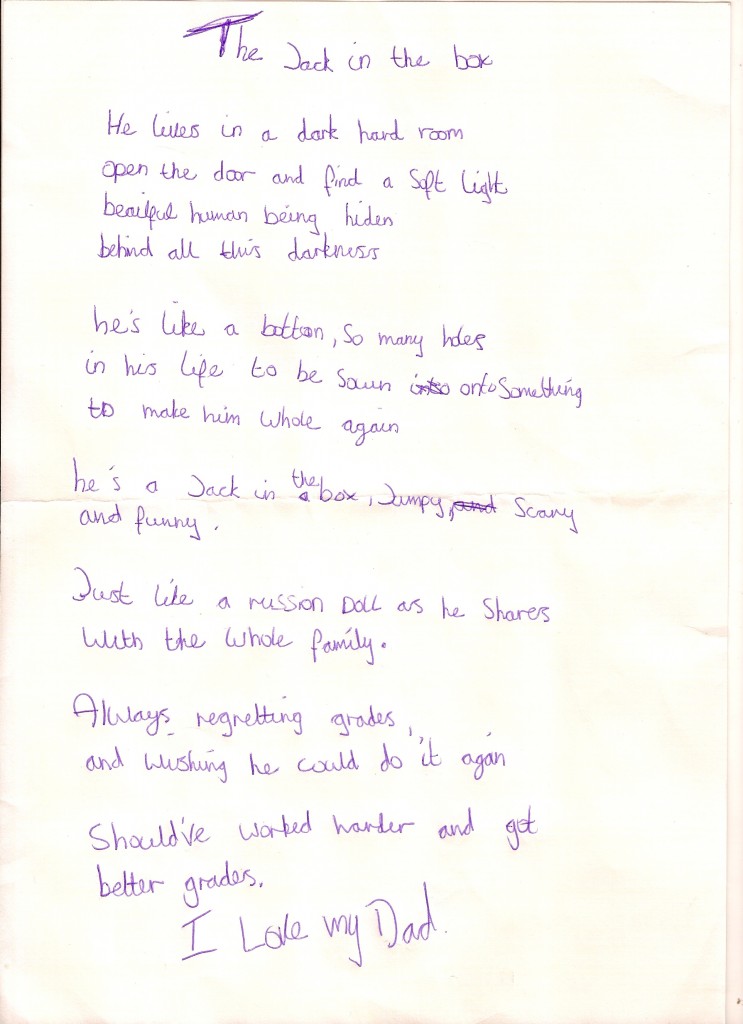 The Jack in the box
He lives in a dark hard room
open the door and find a soft light
beaiful human being hiden
behind all this darkness
he's like a botton, so many holes
in his life to be sown into onto something
to make him whole again
he's a Jack in a the box, Jumpy, and Scary
and funny.
Just like a russion Doll as he shares
with the whole family.
Always regretting grades,
and wishing he could do it again
Should've worked harder and got
better grades.
I Love my Dad.